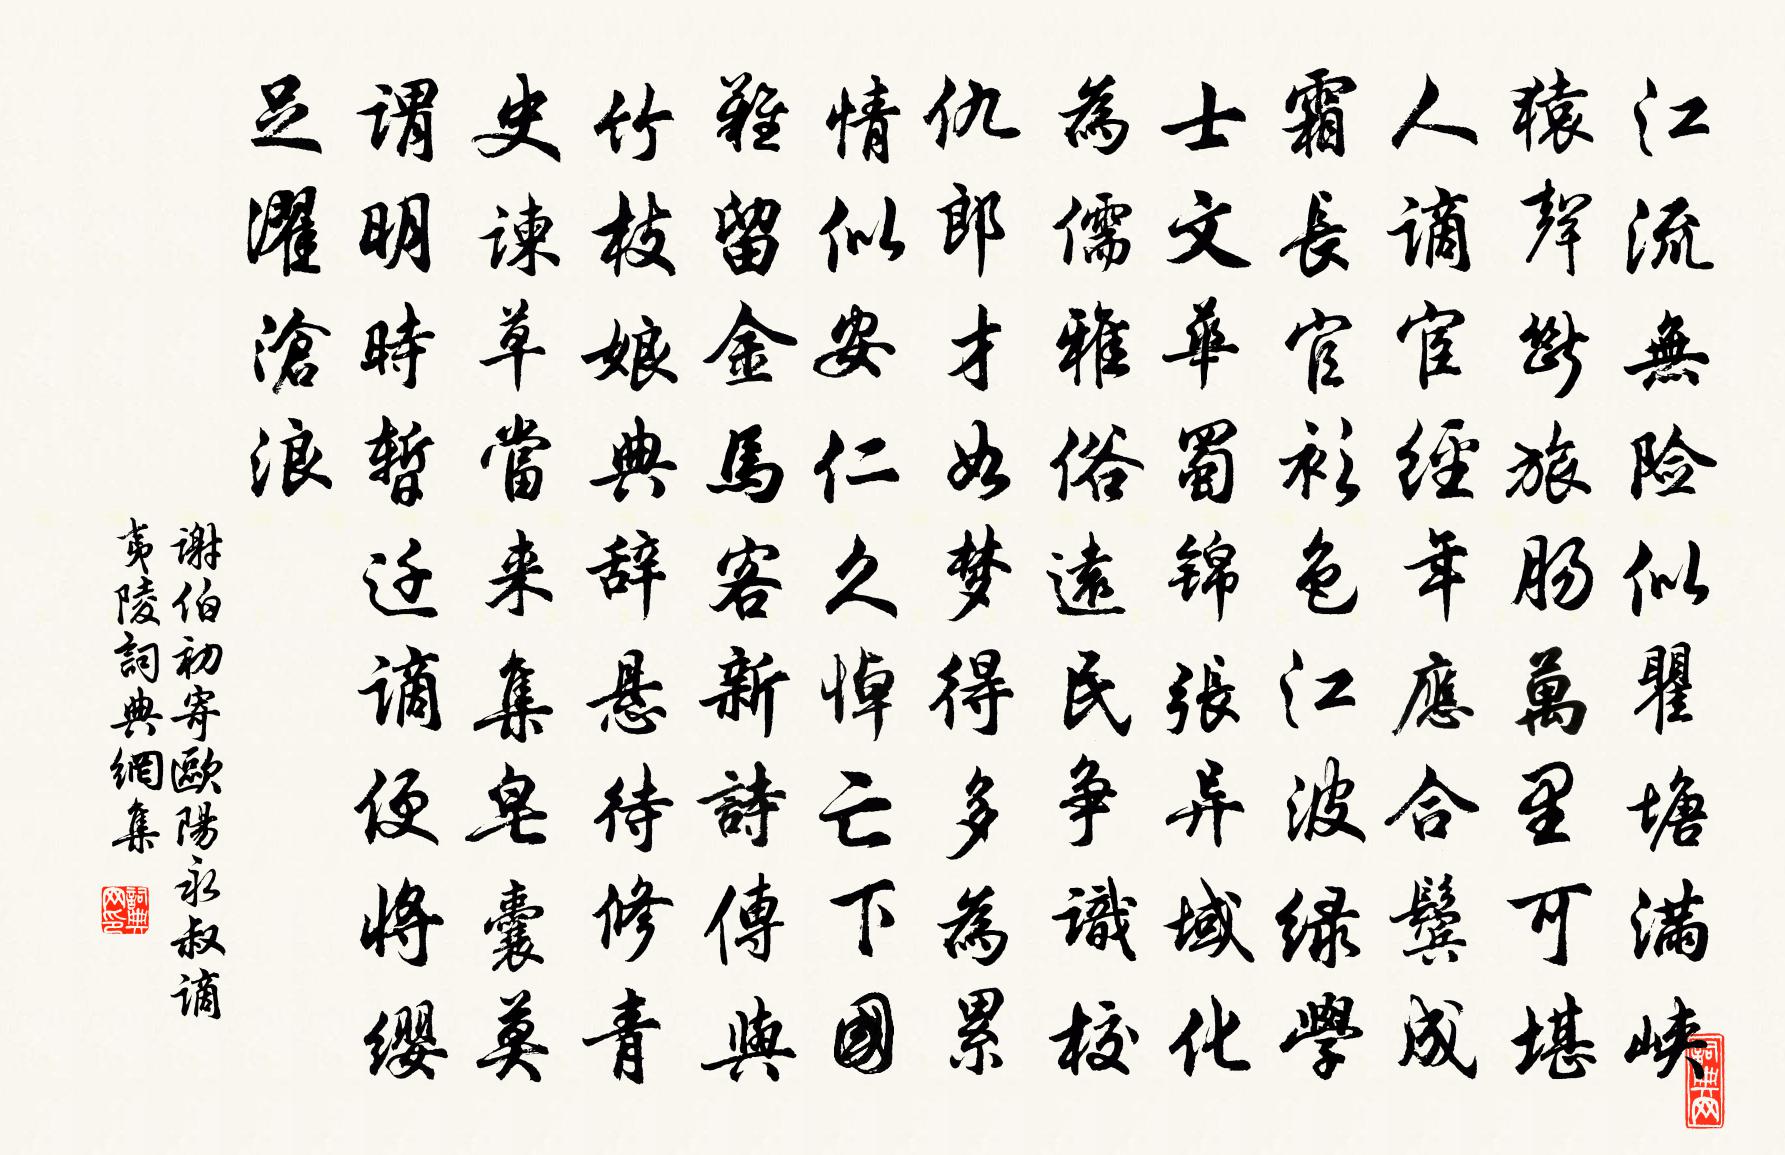 江流無险似瞿塘满峡
猿聲断旅肠萬里可堪
人谪宦經年應合鬓成
霜長官衫色江波绿學
士文華蜀锦張异域化
為儒雅俗遠民争識校
仇郎才如梦得多為累
情似安仁久悼亡下國
難留金馬客新詩傳與
竹枝娘典辞悬待修青
史谏草當来集皂囊莫
谓明時暫迁谪便将缨
足濯滄浪
谢伯初寄歐陽永叔谪
夷陵詞典網集
詞典网印
詞典网